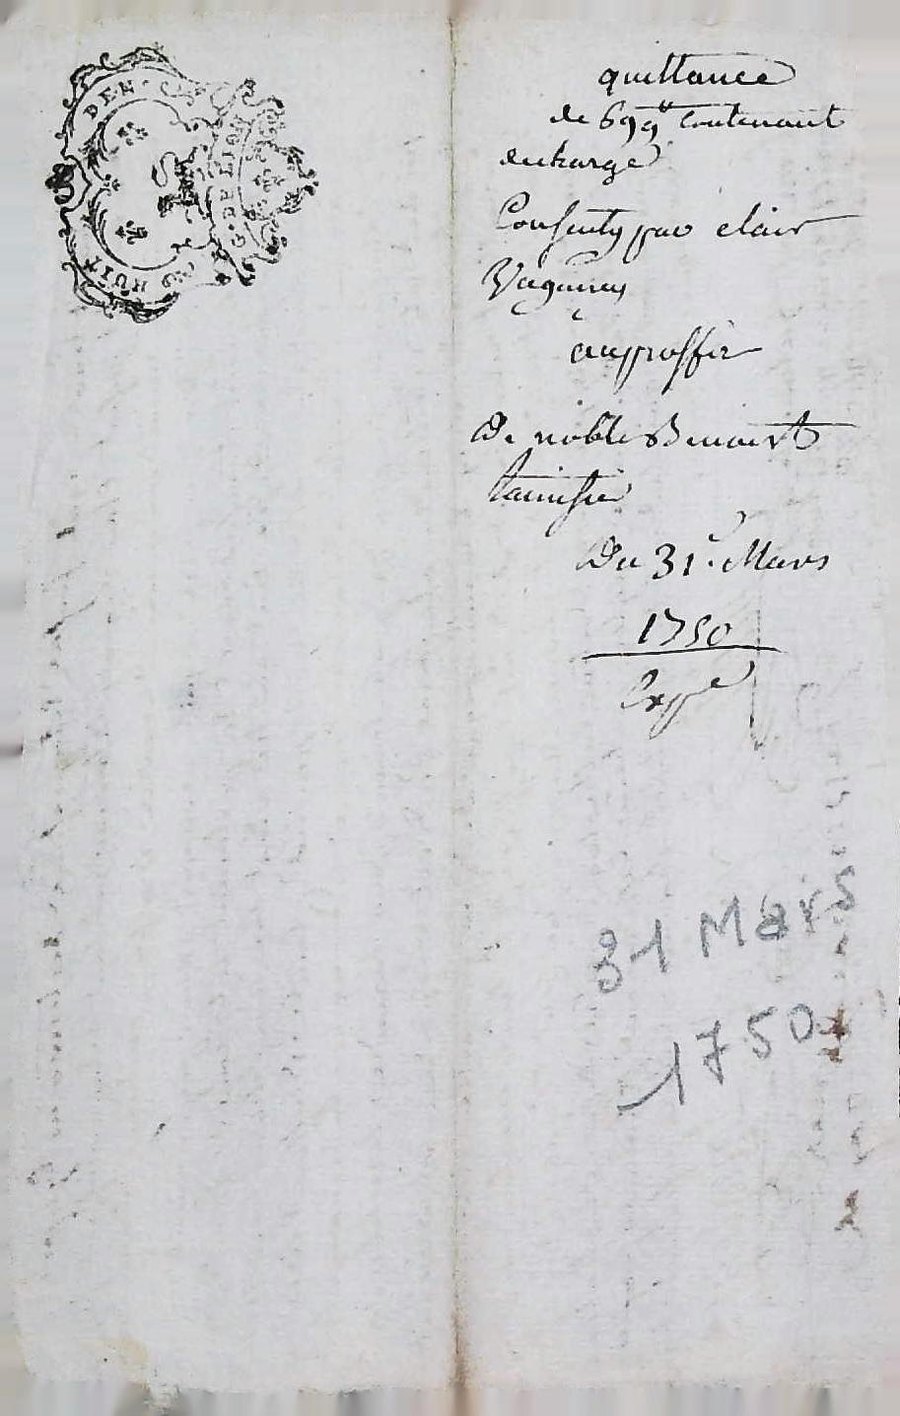 DEN. HUIT
G. DE LION
quittance
de 699 ᵗᵗ Contenant
decharge
Consenty par clair
Vaginay
au proffit
De noble Benoist
Du 31.e Mars
1750
Exp.e
31 Mars
1750